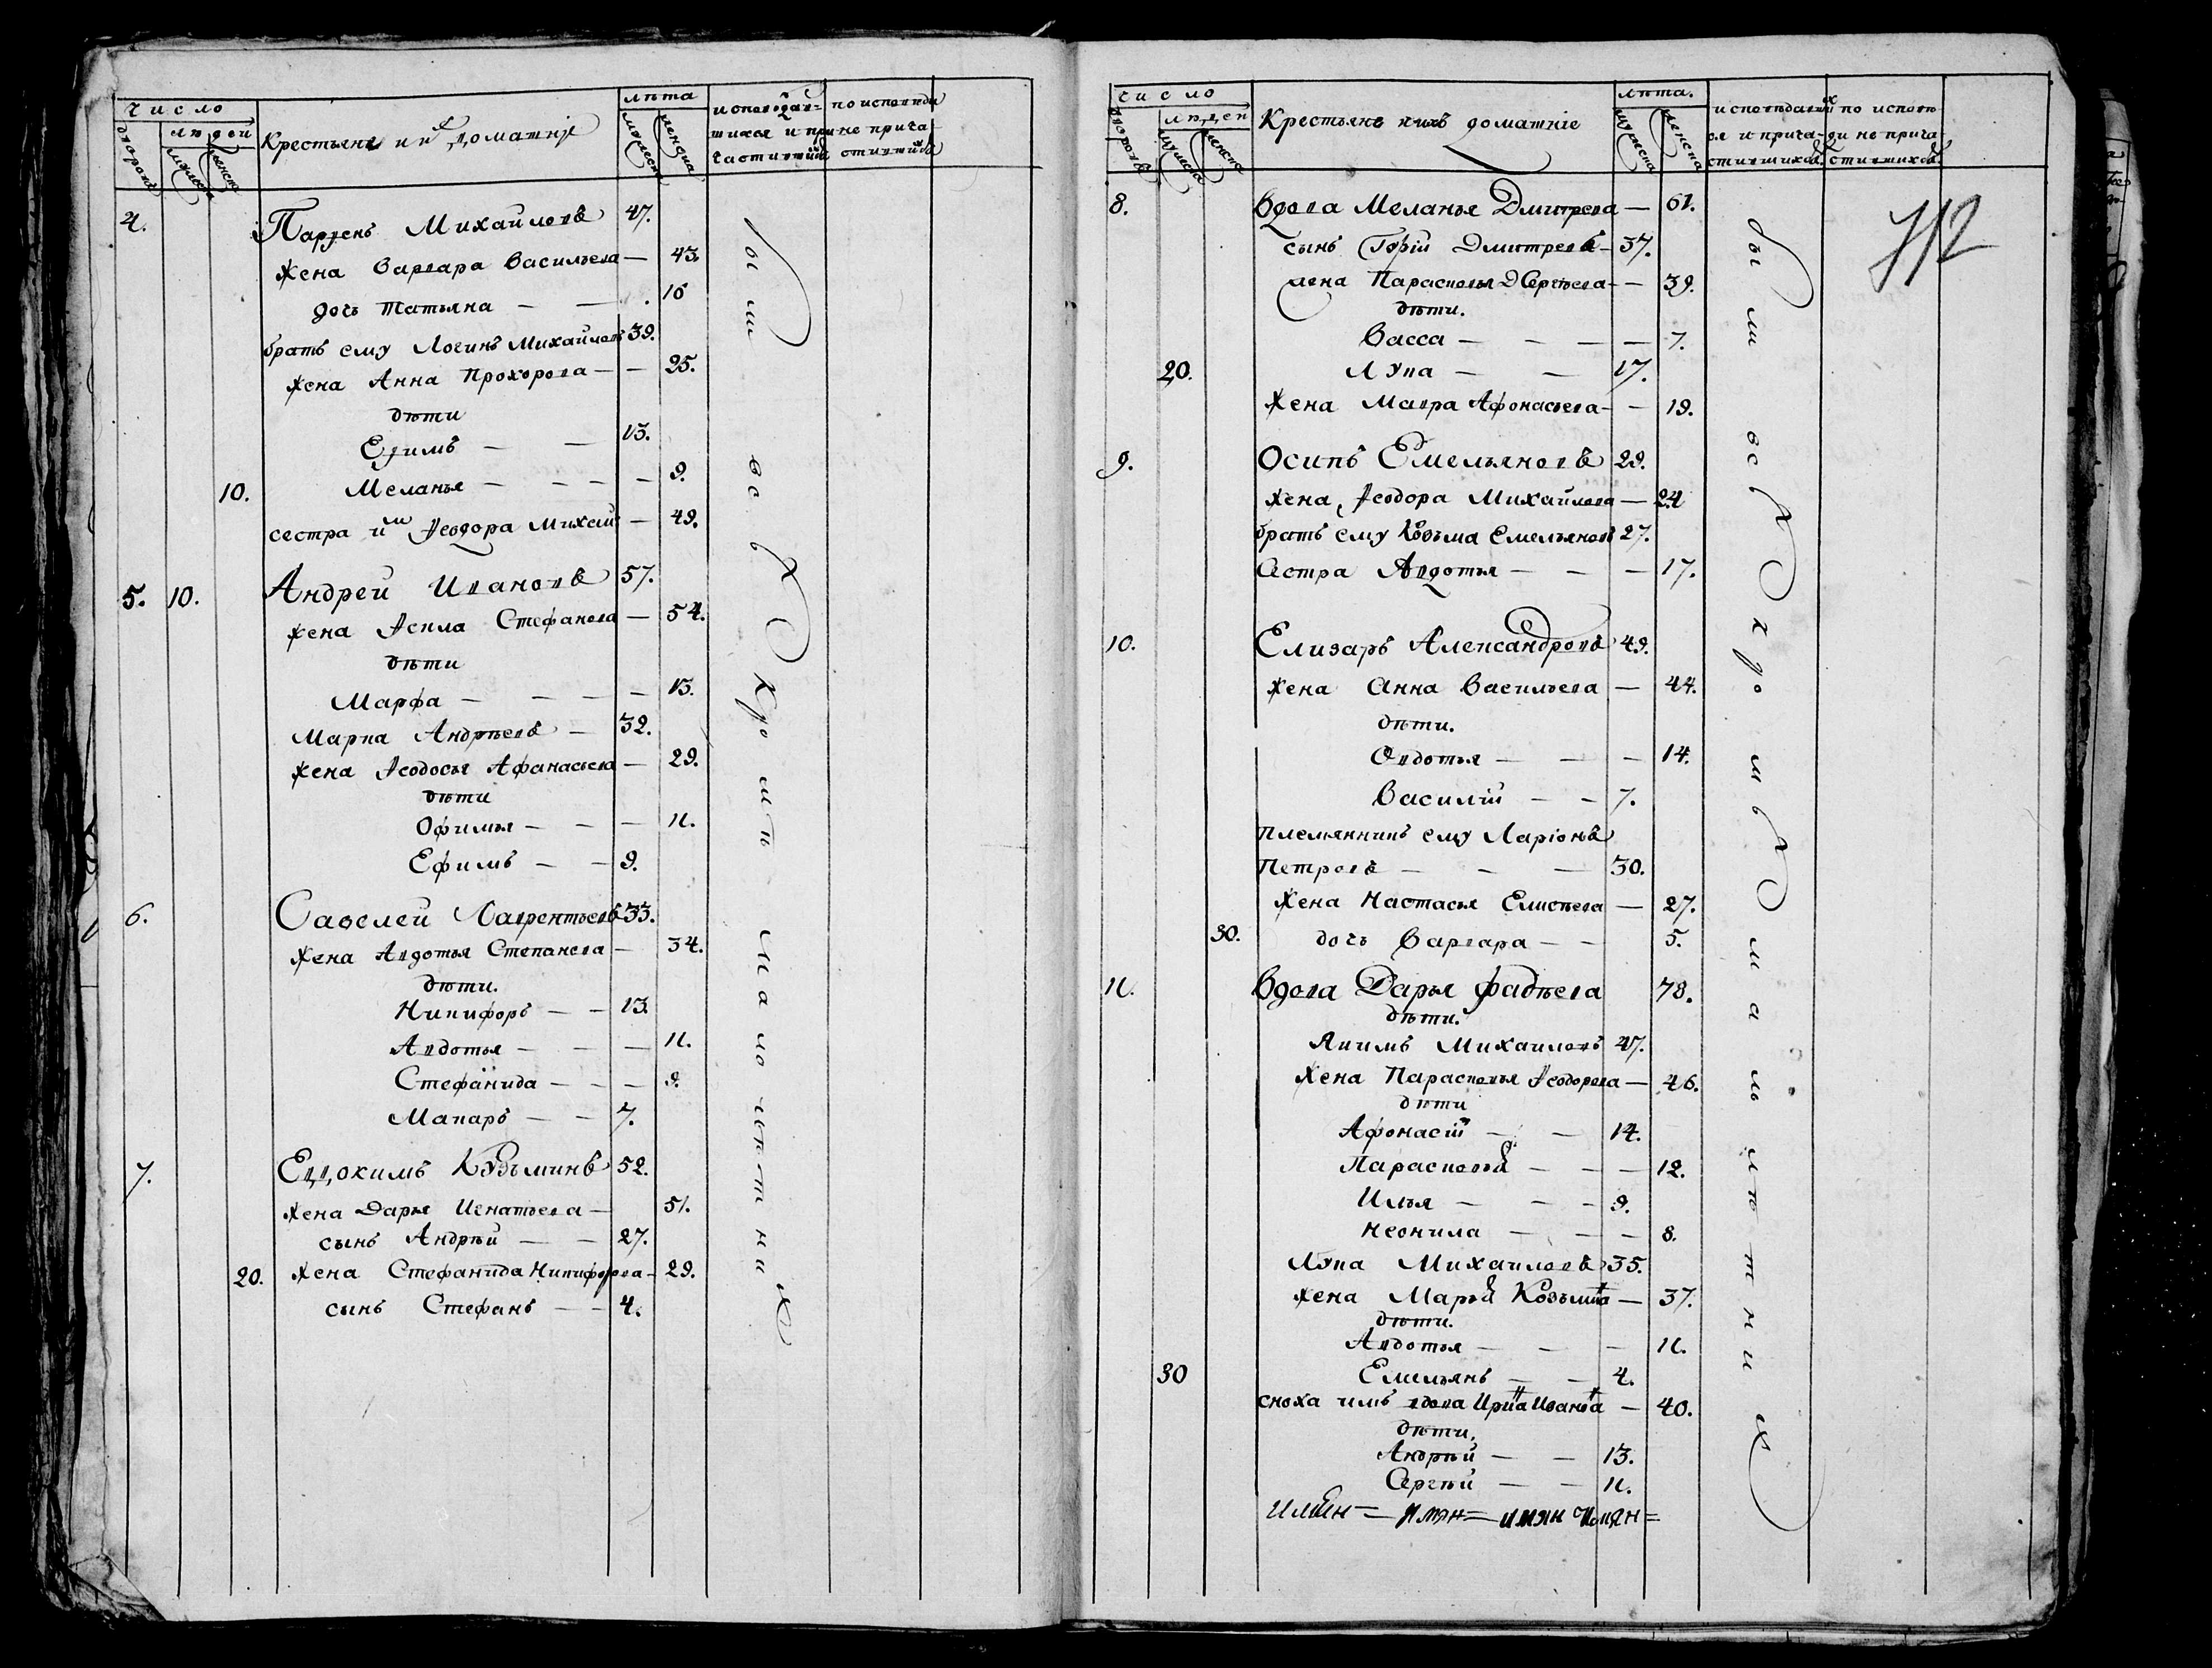 число
людей
дворовъ
мужеска
женска
Крестьяне и ихъ домашніе
лѣта
мужеск
женска
исповѣдав-
шихся и при
частившихся
по исповѣди
не прича
стившихся
4. Парфенъ Михайловъ 47.
жена Варвара Васильева — 43.
дочь Татьяна — — 16
братъ ему Логинъ Михайловъ 39.
жена Анна Прохорова — — 25.
дѣти
Ефимъ — — 13.
10. Меланья — — — — 9.
сестра имъ Ѳеодора Михай — 49.
5. 10. Андрей Ивановъ 57.
жена Ѳекла Стефанова — 54.
дѣти
Марфа — — — — 13.
Марка Андрѣевъ — 32.
жена Ѳеодосья Афанасьева — 29.
дѣти
Офимья — — — 11.
Ефимъ — — 9.
6. Савелей Лаврентьевъ 33.
жена Авдотья Степанова — 34.
дѣти.
Никифоръ — — 13.
Авдотья — — — 11.
Стефанида — — — 9.
Макаръ — — 7.
7. Евдокимъ Кузьминъ 52.
жена Дарья Игнатьева — 51.
сынъ Андрѣй — — 27.
20. жена Стефанида Никифорова — 29.
сынъ Стефанъ — — 4.
были всѣ кромѣ малолѣтних
число
людей
дворовъ
мужеска
женска
Крестьяне и ихъ домашніе
лѣта.
мужеска
женска
исповѣдавших
ся и прича-
стившихся.
по исповѣ
ди не прича-
стившихся.
8. Вдова Меланья Дмитрева — 61.
сынъ Гюрій Дмитревъ — 37.
жена Парасковья Сергѣева — — 39.
дѣти.
Васса — — — — 7.
20. Лука — — 17.
жена Мавра Афонасьева — — 19.
9. Осипъ Емельяновъ 29.
жена Ѳеодора Михайлова — 24
братъ ему Козьма Емельяновъ 27.
Сестра Авдотья — — — 17.
10. Елизаръ Александровъ 49.
жена Анна Васильева — 44.
дѣти.
Овдотья — — — 14.
Василій — — 7.
племянникъ ему Ларіонъ
Петровъ — — — 30.
жена Настасья Елисѣева — 27.
30. дочь Варвара — — 5.
11. Вдова Дарья Фадѣева 78.
дѣти.
Якимъ Михаиловъ 47.
жена Парасковья Ѳеодорова — 46.
дѣти
Афонасій — — 14.
Парасковья — — — 12.
Илья — — — 9.
Неонила — — — 8.
Лука Михаиловъ 35.
жена Марья Козьмина — 37.
дѣти.
Авдотья — — — 11.
30 Емельянъ — — 4.
сноха имъ вдова Ирина Иванова — 40.
дѣти.
Андрѣй — — 13.
Сергѣй — — 11.
имян = имян = имян имян =
были всѣ кромѣ малолѣтних
712